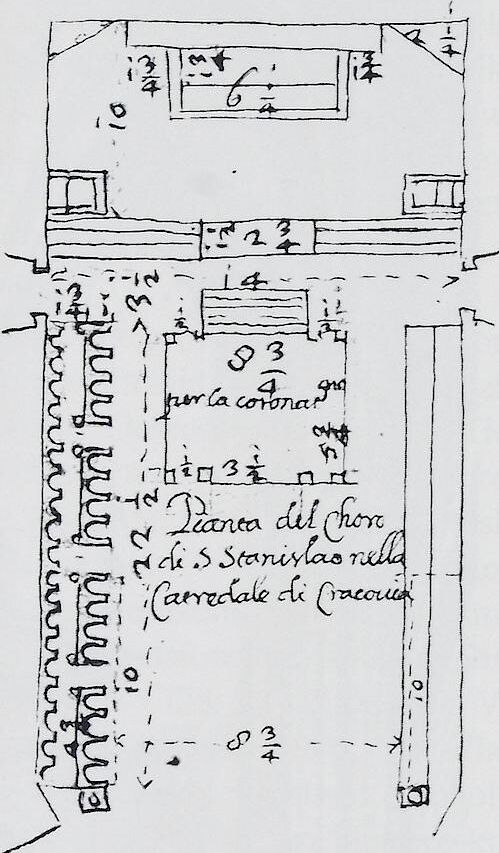 2 1/4
1 3/4
1 3/4
1 3/4
6 1/4
10
1/2 2 3/4
3 1/2
14
1 3/4
1/2
1/2
8 3/4
per la coronaz.ne
5 3/4
1/2
3 1/2
22 1/2
Pianta del Choro
di S Stanislao nella
Catredale di Cracovia
10
10
8 3/4